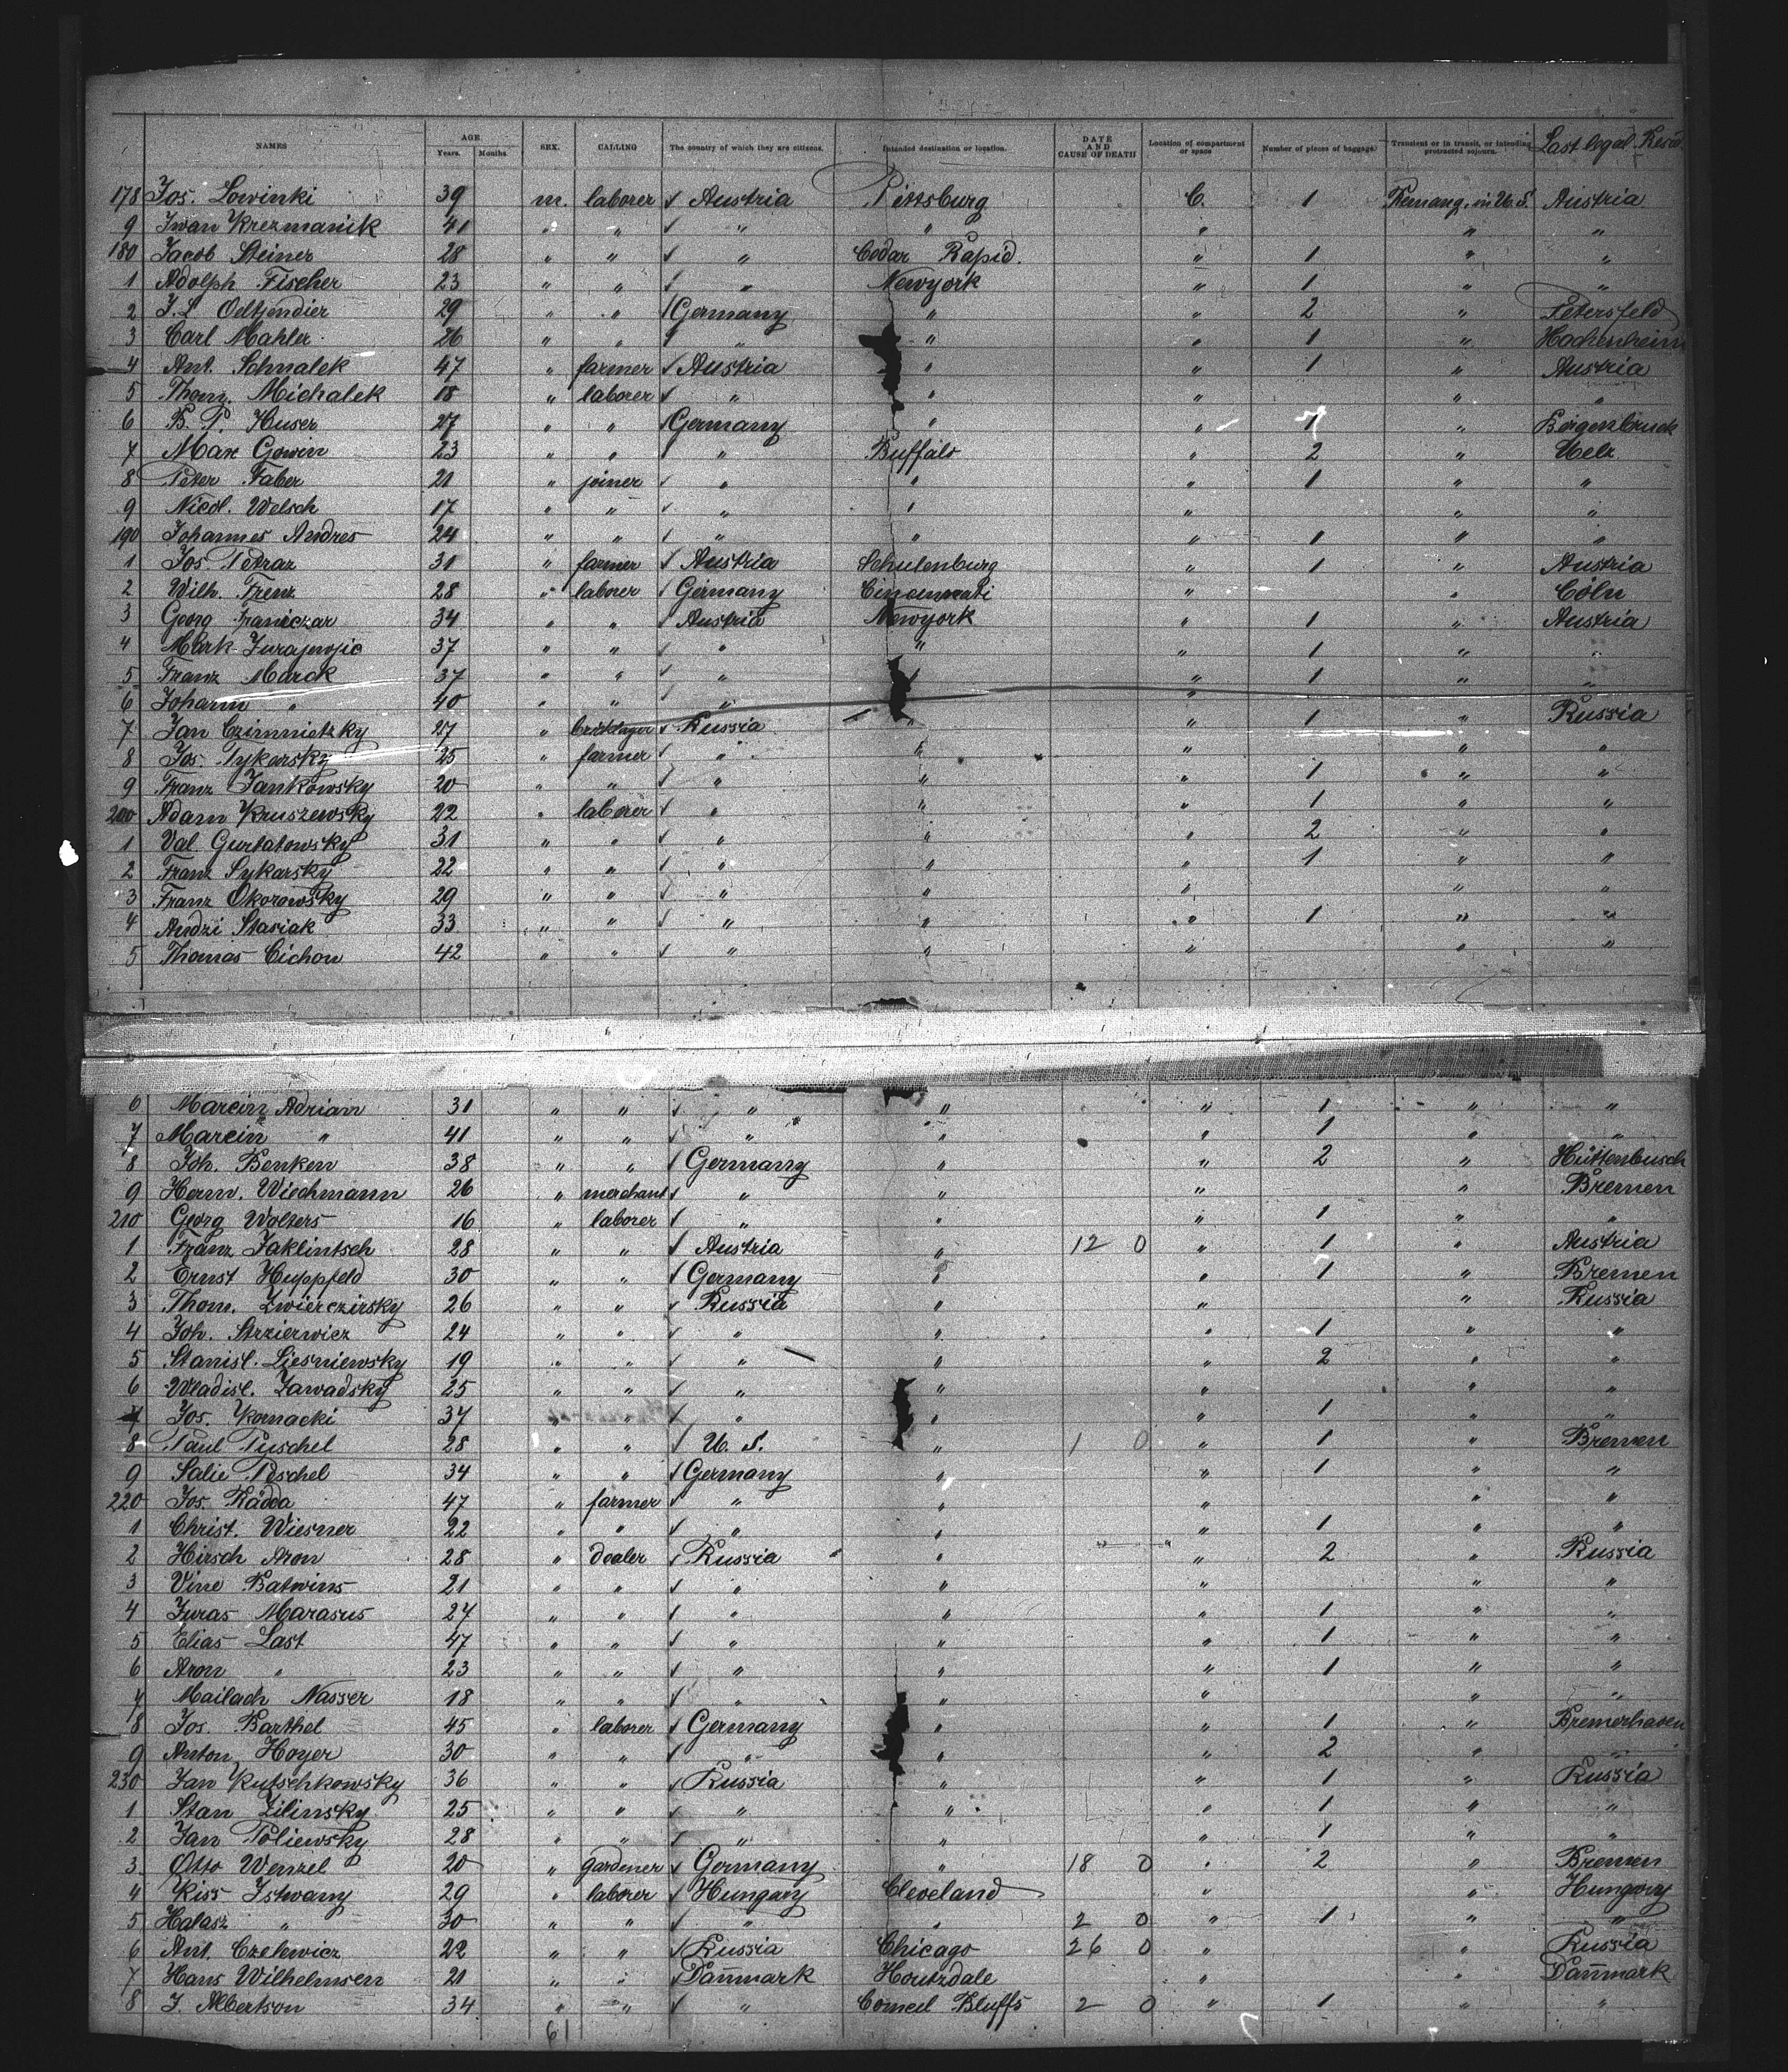 NAMES AGE. Years. Months. SEX. CALLING The country of which they are citizens. Intended destination or location. DATE AND CAUSE OF DEATH Location of compartment or space Number of pieces of baggage. Transient or in transit, or intending protracted sojourn. Last legal Resid.
178 Jos. Lowinki 39 m. laborer ✓ Austria Pittsburg C. 1 Remang. in U.S. Austria
9 Iwan Krezmanik 41 " " ✓ " " " " "
180 Jacob Steiner 28 " " ✓ " Codar Rapid. " 1 " "
1 Adolph Fischer 23 " " ✓ " Newyork " 1 " "
2 J. L. Oeltjendier 29 " " ✓ Germany " " 2 " Petersfeld
3 Carl Mahler 26 " " ✓ " " " 1 " Hochenheim
4 Ant. Schnalek 47 " farmer ✓ Austria " " 1 " Austria
5 Thom. Michalek 18 " laborer ✓ " " " " "
6 B. P. Huser 27 " " ✓ Germany " " 1 "
7 Max Gowin 23 " " ✓ " Buffalo " 2 " Uelz
8 Peter Faber 21 " joiner ✓ " " " 1 " "
9 Nicol. Welsch 17 " " ✓ " " " " "
190 Johannes Andres 24 " " ✓ " " " 1 " "
1 Jos. Petraz 31 " farmer ✓ Austria Schulenburg " 1 " Austria
2 Wilh. Frenz 28 " laborer ✓ Germany Cincinnati " " Cöln
3 Georg Franiczar 34 " " ✓ Austria Newyork " 1 " Austria
4 Mark Jurajewjic 37 " " ✓ " " " 1 " "
5 Franz Marck 37 " " ✓ " " " 1 " "
6 Johann " 40 " " ✓ " "
7 Jan Czinnietzky 27 " bricklayer ✓ Russia " " 1 " Russia
8 Jos. Tykarsky 25 " farmer ✓ " " " " "
9 Franz Jankowsky 20 " " ✓ " " " 1 " "
200 Adam Kruszewsky 22 " laborer ✓ " " " 1 " "
1 Val. Gurtatowsky 31 " " ✓ " " " 2 " "
2 Franz Sykarsky 22 " " ✓ " " " 1 " "
3 Franz Okorowsky 29 " " ✓ " " " " "
4 Andzi Stasiak 33 " " ✓ " " " 1 " "
5 Thomas Cichon 42 " " ✓ " " " " "
6 Marcin Adrian 31 " " ✓ " " " 1 " "
7 Marcin " 41 " " ✓ " " " 1 " "
8 Joh. Benken 38 " " ✓ Germany " " 2 " Hüttenbusch
9 Herm. Wiechmann 26 " merchant ✓ " " " " Bremen
210 Georg Wolters 16 " laborer ✓ " " " 1 " "
1 Franz Jaklintsch 28 " " ✓ Austria " 12 0 " 1 " Austria
2 Ernst Huppfeld 30 " " ✓ Germany " " 1 " Bremen
3 Thom. Zwierczirsky 26 " " ✓ Russia " " " Russia
4 Joh. Strzierwicz 24 " " ✓ " " " 1 " "
5 Stanisl. Liesniewsky 19 " " ✓ " " " 2 " "
6 Wladisl. Zawadsky 25 " " ✓ " " " " "
7 Jos. Kornacki 37 " " ✓ " " " 1 " "
8 Paul Puschel 28 " " ✓ U. S. " 1 0 " 1 " Bremen
9 Salie Poschel 34 " " ✓ Germany " " 1 " "
220 Jos. Rädda 47 " farmer ✓ " " " " "
1 Christ. Wiesner 22 " " ✓ " " " 1 " "
2 Hirsch Aron 28 " dealer ✓ Russia " " 2 " Russia
3 Vine Batwins 21 " " ✓ " " " " "
4 Juras Marasus 27 " " ✓ " " " 1 " "
5 Elias Last 47 " " ✓ " " " 1 " "
6 Aron " 23 " " ✓ " " " 1 " "
7 Mailach Nasser 18 " " ✓ " " " " "
8 Jos. Barthel 45 " laborer ✓ Germany " " 1 " Bremerhaven
9 Anton Hoyer 30 " " ✓ " " " 2 " "
230 Jan Kutschkowsky 36 " " ✓ Russia " " 1 " Russia
1 Stan Zilinsky 25 " " ✓ " " " 1 " "
2 Jan Poliewsky 28 " " ✓ " " " 1 " "
3 Otto Wenzel 20 " gardener ✓ Germany " 18 0 " 2 " Bremen
4 Kiss Istwany 29 " laborer ✓ Hungary Cleveland " " Hungary
5 Halasz " 30 " " ✓ " " 2 0 " 1 " "
6 Ant. Czehwicz 22 " " ✓ Russia Chicago 26 0 " " Russia
7 Hans Wilhelmsen 21 " " ✓ Danmark Houtzdale " " Danmark
8 J. Albertson 34 " " ✓ " Corneil Bluffs 2 0 " 1 " "
61